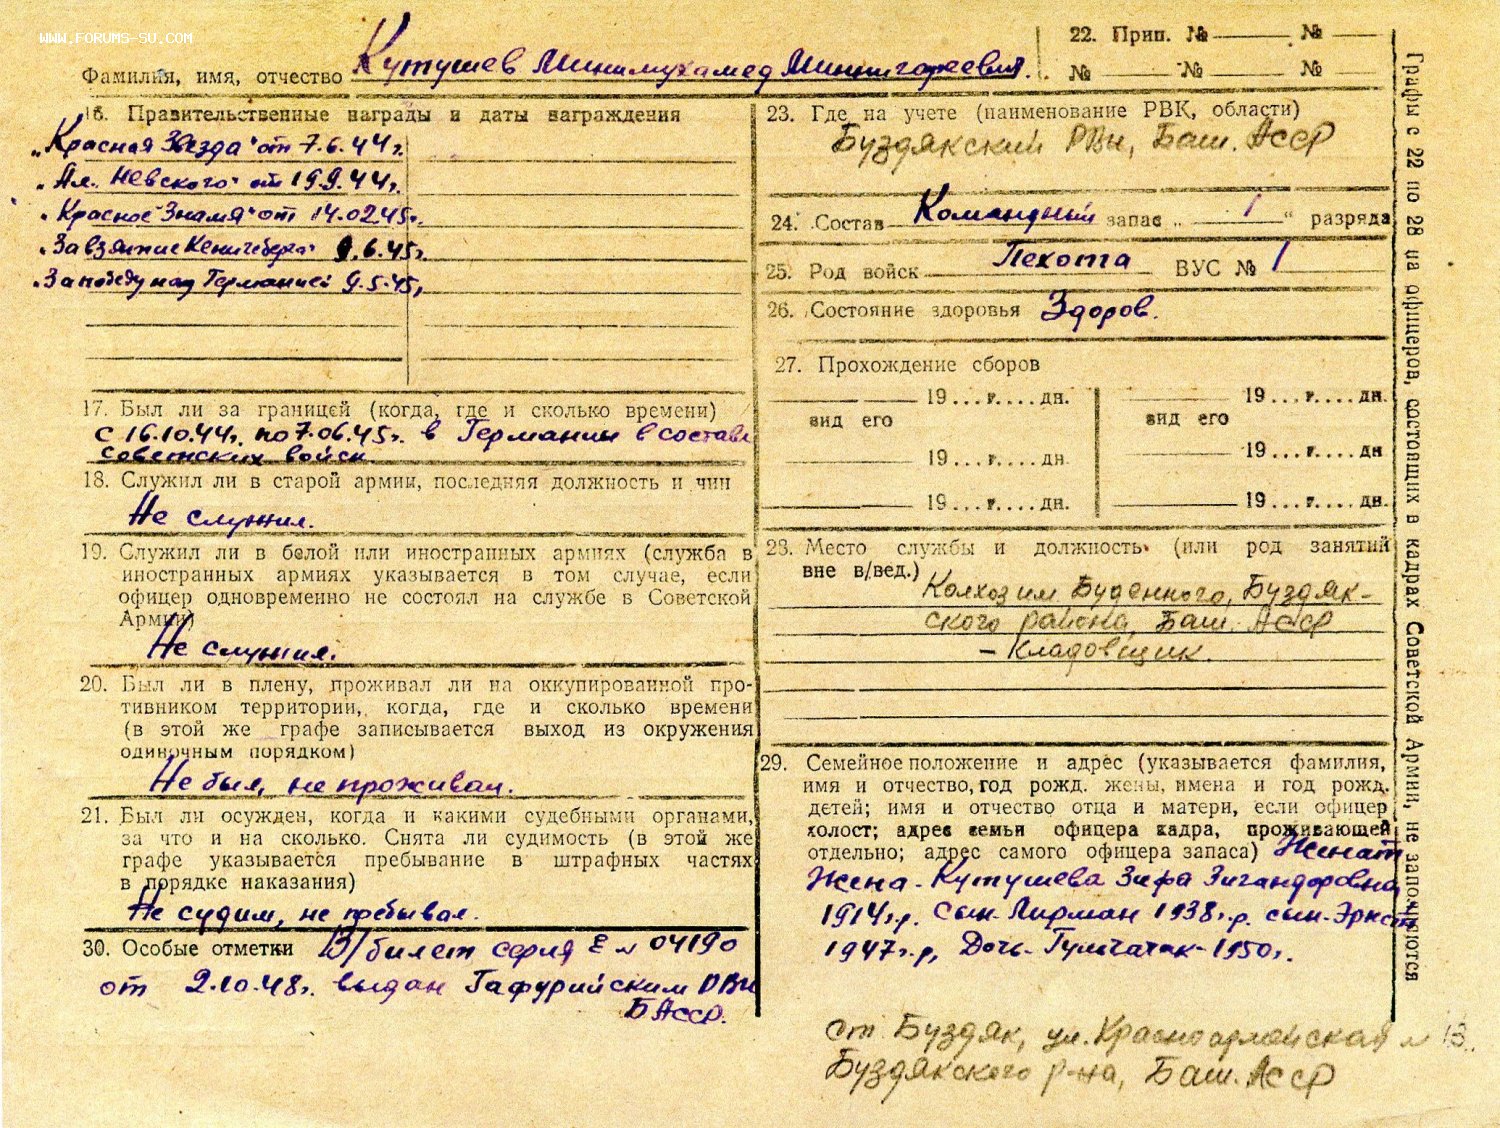 WWW.FORUMS-SU.COM
Фамилия, имя, отчество Кутушев Минимухамед Миннигареевич.
16. Правительственные награды и даты награждения
„Красная Звезда“ от 7.6.44г.
„Ал. Невского“ от 19.9.44г.
„Красное Знамя“ от 14.02.45г.
„За взятие Кенигсберга“ 9.6.45г.
„За победу над Германией 9.5.45г.
17. Был ли за границей (когда, где и сколько времени)
с 16.10.44г. по 7.06.45г. в Германии в составе
советских войск
18. Служил ли в старой армии, последняя должность и чин
Не служил.
19. Служил ли в белой или иностранных армиях (служба в
иностранных армиях указывается в том случае, если
офицер одновременно не состоял на службе в Советской
Армии)
Не служил.
20. Был ли в плену, проживал ли на оккупированной про-
тивником территории, когда, где и сколько времени
(в этой же графе записывается выход из окружения
одиночным порядком)
Не был, не проживал.
21. Был ли осужден, когда и какими судебными органами,
за что и на сколько. Снята ли судимость (в этой же
графе указывается пребывание в штрафных частях
в порядке наказания)
Не судим, не пребывал.
30. Особые отметки В/билет серия Е № 04190
от 2.10.48г. выдан Гафурийским РВК
БАССР.
22. Прип. № №
№ № №
23. Где на учете (наименование РВК, области)
Буздякский РВК, Баш. АССР
24. Состав Командный запас „ 1 “ разряда
25. Род войск Пехота ВУС № 1
26. Состояние здоровья Здоров.
27. Прохождение сборов
19...г....дн. 19...г....дн.
вид его вид его
19...г....дн. 19...г....дн
19...г....дн. 19...г....дн.
28. Место службы и должность (или род занятий
вне в/вед.)
Колхоз им Буденного, Буздяк-
ского района, Баш. АССР
- Кладовщик.
29. Семейное положение и адрес (указывается фамилия,
имя и отчество, год рожд. жены, имена и год рожд.
детей; имя и отчество отца и матери, если офицер
холост; адрес семьи офицера кадра, проживающей
отдельно; адрес самого офицера запаса) Женат
Жена - Кутушева Зифа Зигандаровна
1914г.р. сын - Лирман 1938г.р. сын - Эрнст
1947г.р, Дочь - Гульчачак - 1950г.
ст. Буздяк, ул. Красноармейская № 13.
Буздякского р-на, Баш. АССР
Графы с 22 по 28 на офицеров, состоящих в кадрах Советской Армии, не заполняются